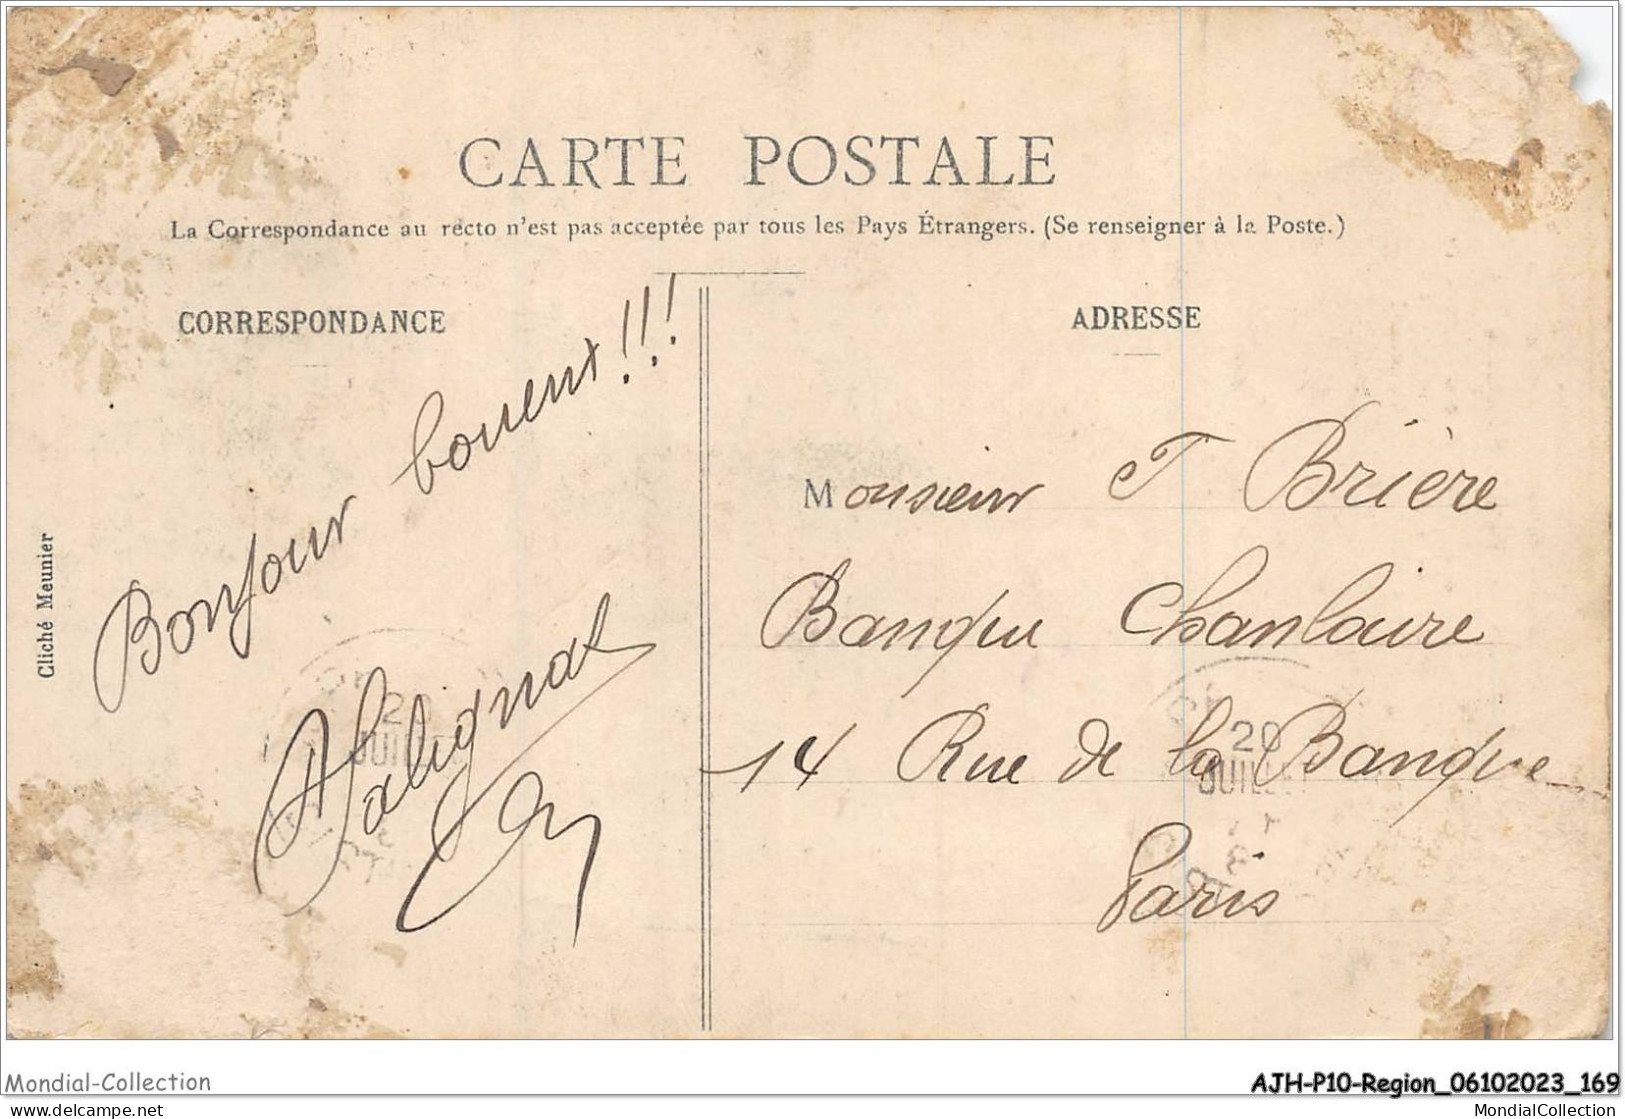 CARTE POSTALE
La Correspondance au recto n'est pas acceptée par tous les Pays Étrangers. (Se renseigner à la Poste.)
CORRESPONDANCE
ADRESSE
Bonjour
Cliché Meunier
Monsieur T Brière
Banque Chanlaire
14 Rue de la Banque
Paris
20
JUILLET
Mondial-Collection
AJH-P10-Region_06102023_169
www.delcampe.net
MondialCollection